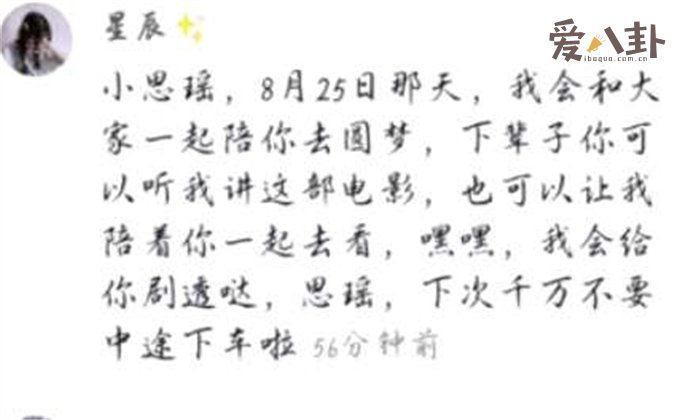 星辰✨
爱八卦
ibagua.com.cn
小思瑶，8月25日那天，我会和大
家一起陪你去圆梦，下辈子你可
以听我讲这部电影，也可以让我
陪着你一起去看，嘿嘿，我会给
你剧透哒，思瑶，下次千万不要
中途下车啦 56分钟前